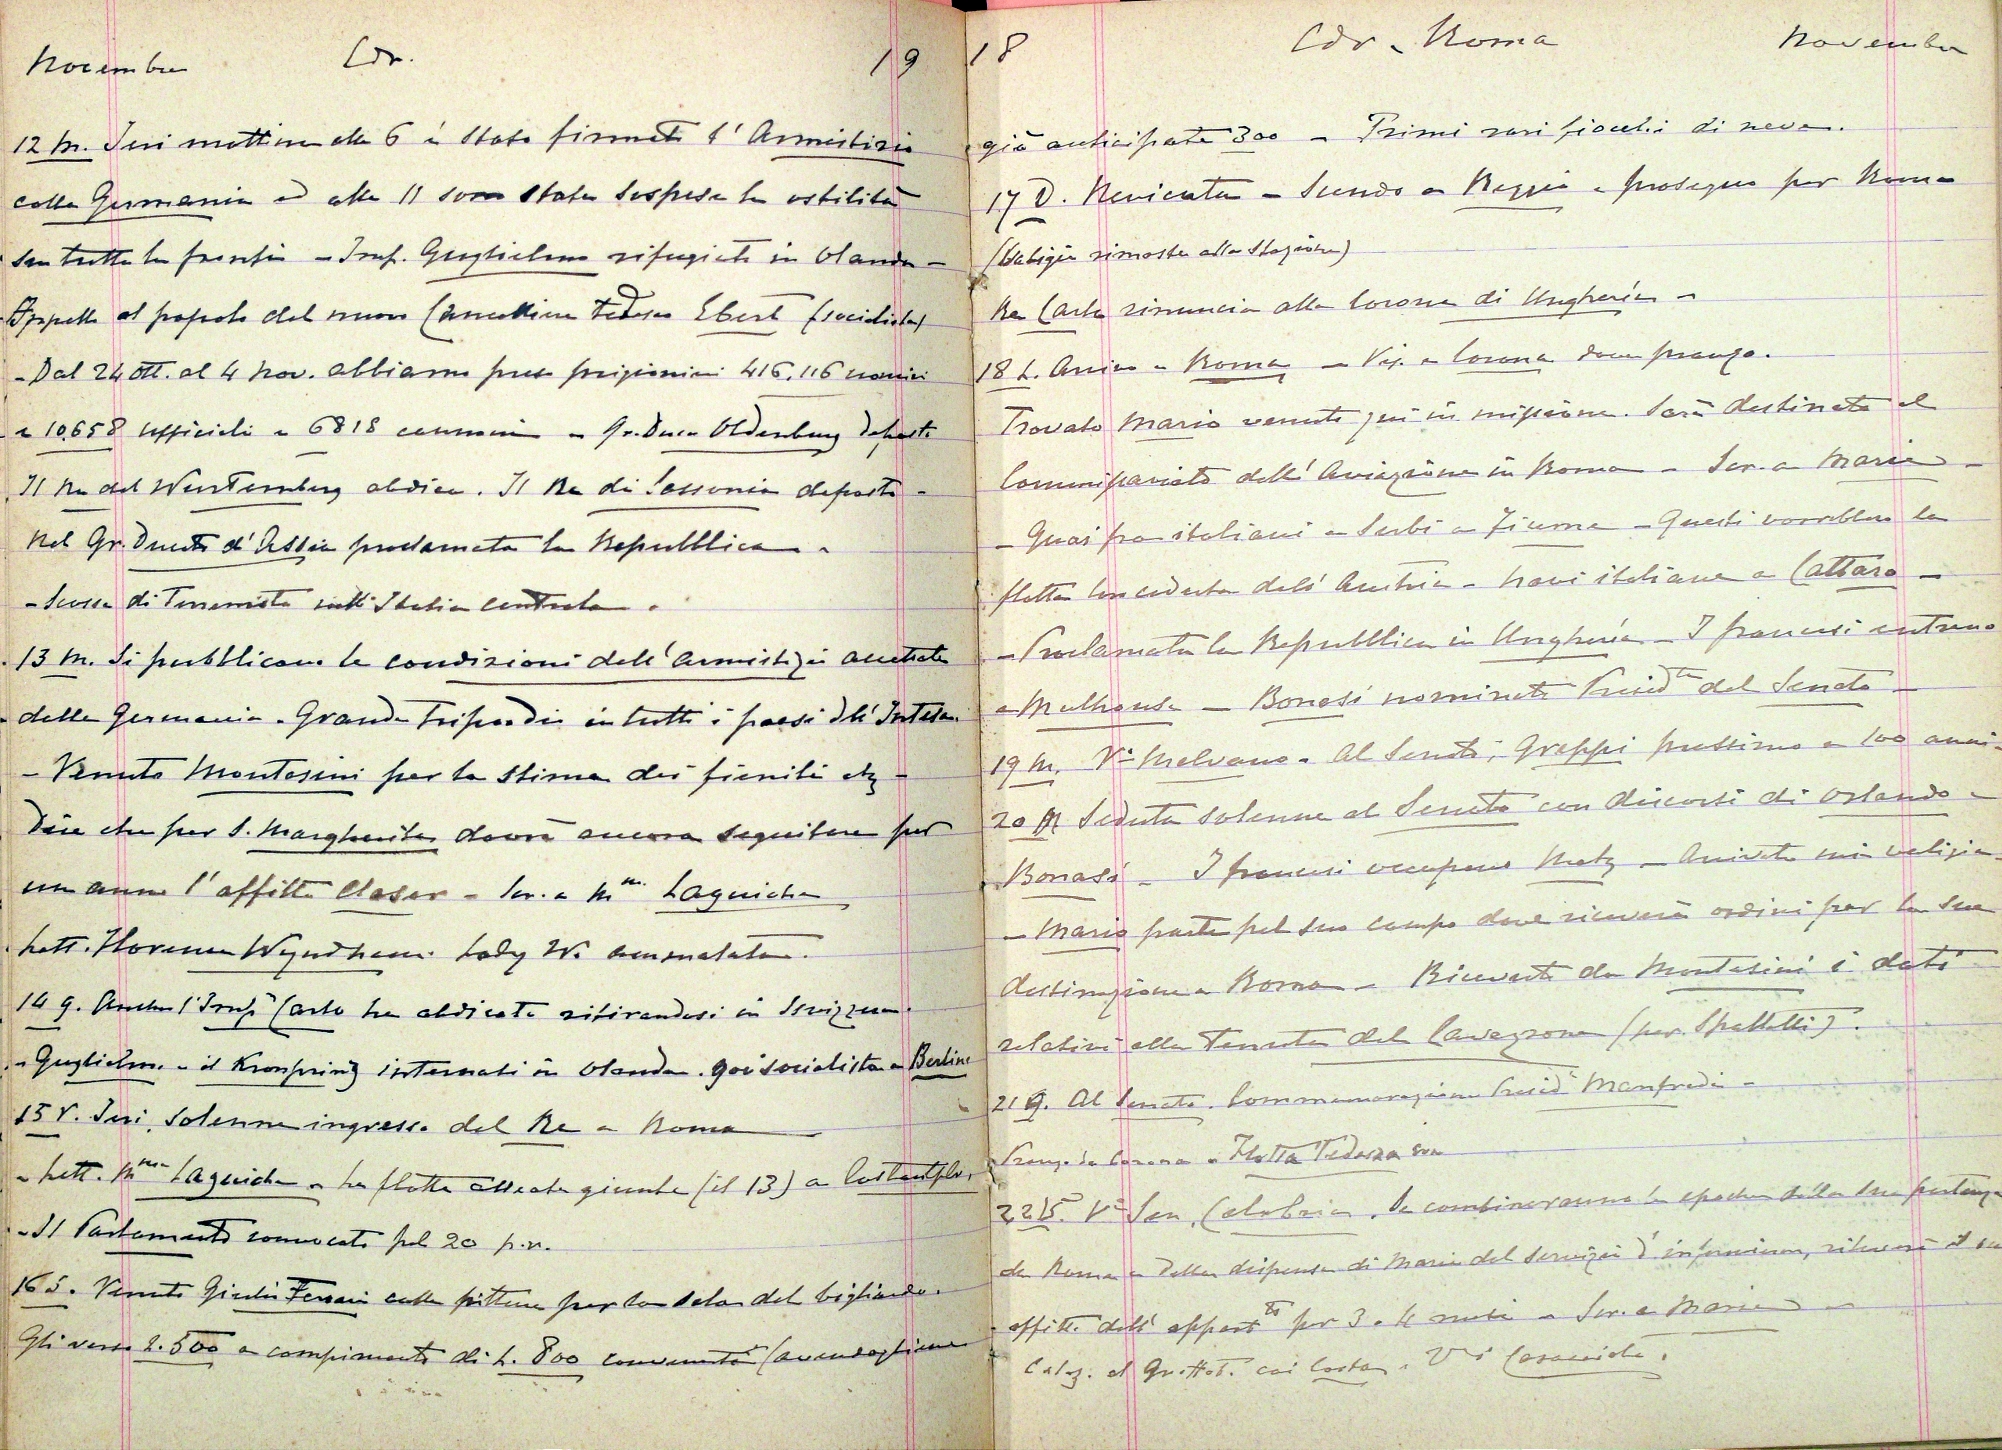 Novembre Cdr. 19
12 M. Ieri mattina alle 6 è stato firmato l'Armistizio
colla Germania ed alle 11 sono state sospese le ostilità
su tutta la fronte – Imp. Guglielmo rifugiato in Olanda –
Appello al popolo del nuovo Cancelliere tedesco Ebert (socialista)
– Dal 24 Ott. al 4 Nov. abbiamo preso prigionieri 416.116 uomini
e 10.658 ufficiali e 6818 cannoni – Gr. Duca Oldenburg deposto
Il Re del Wurtemberg abdica. Il Re di Sassonia deposto –
Nel Gr. Ducato d'Assia proclamata la Repubblica –
– Scossa di Terremoto nell'Italia centrale.
13 M. Si pubblicano le condizioni dell'armistizio accettate
dalla Germania. Grande tripudio in tutti i paesi dell'Intesa.
– Venuto Montesini per la stima dei fienili etz –
Dice che per S. Margherita dovrà ancora seguitare per
un anno l'affitto Claser – Scr. a Mme Laguiche
Lett. Florence Wyndham. Lady W. ammalata.
14 G. Anche l'Impre Carlo ha abdicato ritirandosi in Svizzera.
– Guglielmo e il Kronprinz internati in Olanda. Gov. socialista a Berlino
15 V. Ieri, solenne ingresso del Re a Roma
– Lett. Mme Laguiche – La flotta alleata giunta (il 13) a Costantpli.
– Il Parlamento convocato pel 20 p.v.
16 S. Venuto Giulio Ferrari colle pitture per la sala del bigliardo.
Gli verso L. 500 a compimento di L. 800 convenute (avendogliene
18 Cdr – Roma Novembre
già anticipate 300 – Primi rari fiocchi di neve.
17 D. Nevicata – Scendo a Reggio e proseguo per Roma
(Valigia rimasta alla Stazione)
Re Carlo rinuncia alla Corona di Ungheria –
18 L. Arrivo a Roma – Vis. a Corona dove pranzo.
Trovato Mario venuto qui in missione. Sarà destinato al
Commissariato dell'Aviazione in Roma – Scr. a Maria –
– Guai fra italiani e Serbi a Fiume – Questi vorrebbero la
flotta lor ceduta dall'Austria – Navi italiane a Cattaro –
– Proclamata la Repubblica in Ungheria – I francesi entrano
a Mulhouse – Bonasi nominato Presidte del Senato –
19 M. Va Melvano – Al Senato, Greppi prossimo a 100 anni –
20 M Seduta solenne al Senato con discorsi di Orlando e
Bonasi – I francesi occupano Metz – Arrivata mia valigia –
– Mario parte pel suo campo dove riceverà ordini per la sua
destinazione a Roma – Ricevuti da Montesini i dati
relativi alla Tenuta del Cavazzone (per Spalletti).
21 G. Al Senato. Commemorazione Presid. Manfredi –
Pranzo da Corona – Flotta Tedesca
22 S. Va Sen. Calabria. Se combineranno la epoca della sua partenza
da Roma e della dispensa di Maria del servizio d'infermiera, rileverò il suo
affitto dell'apparto per 3 o 4 mesi – Scr. a Maria –
Colaz. al Grottot. coi Costa – Va Caracciolo.